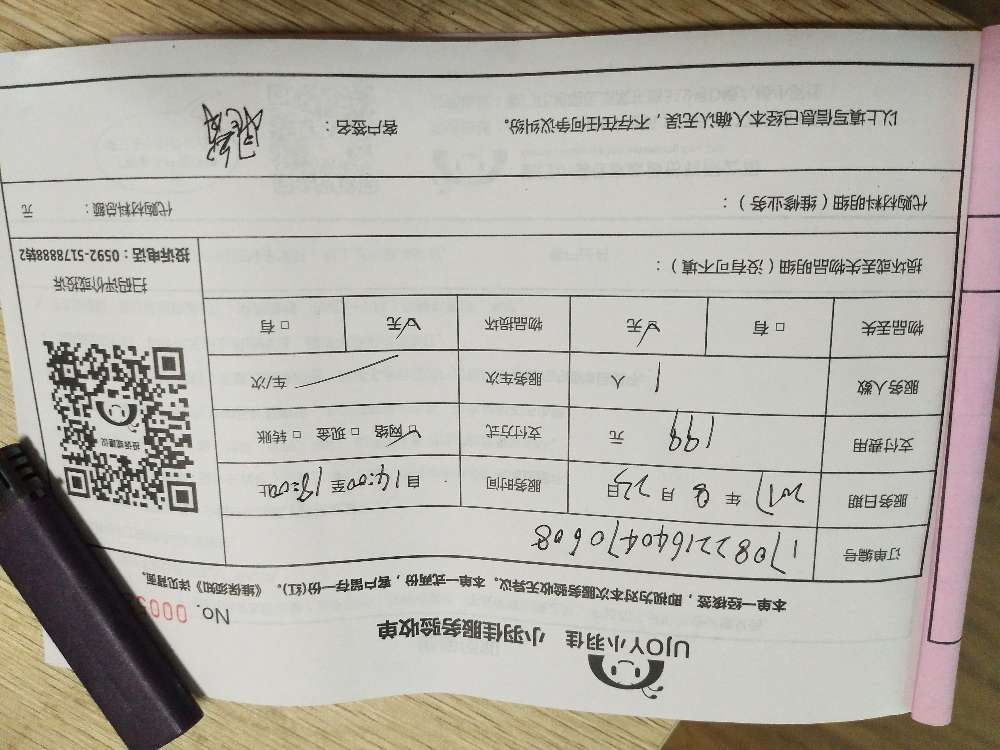 UJOY小羽佳 小羽佳服务验收单
No. 000
本单一经核签，即视为对本次服务验收无异议。本单一式两份，客户留存一份(红)。《维保须知》详见背面。
订单编号 170822164047 0608
服务日期 2017 年 8 月 23 日 服务时间 自 14:00 至 18:00 止
支付费用 199 元 支付方式 ☑ 网络 □ 现金 □ 转账
服务人数 1 人 服务车次 车/次
物品丢失 □ 有 ☑ 无 物品损坏 ☑ 无 □ 有
投诉或建议
扫码评价或投诉
投诉电话：0592-5178888转2
损坏或丢失物品明细（没有可不填）：
代购材料明细（维修业务）： 代购材料总额： 元
以上填写信息已经本人确认无误，不存在任何争议纠纷。 客户签名：